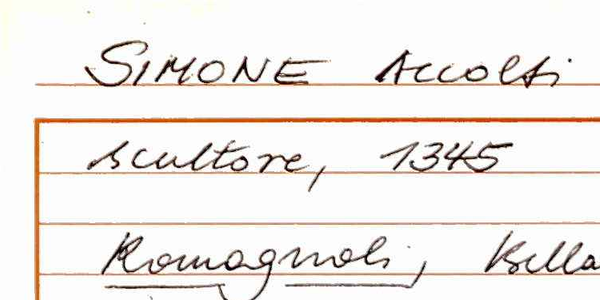 SIMONE Accolti
scultore, 1345
Romagnoli, Bella